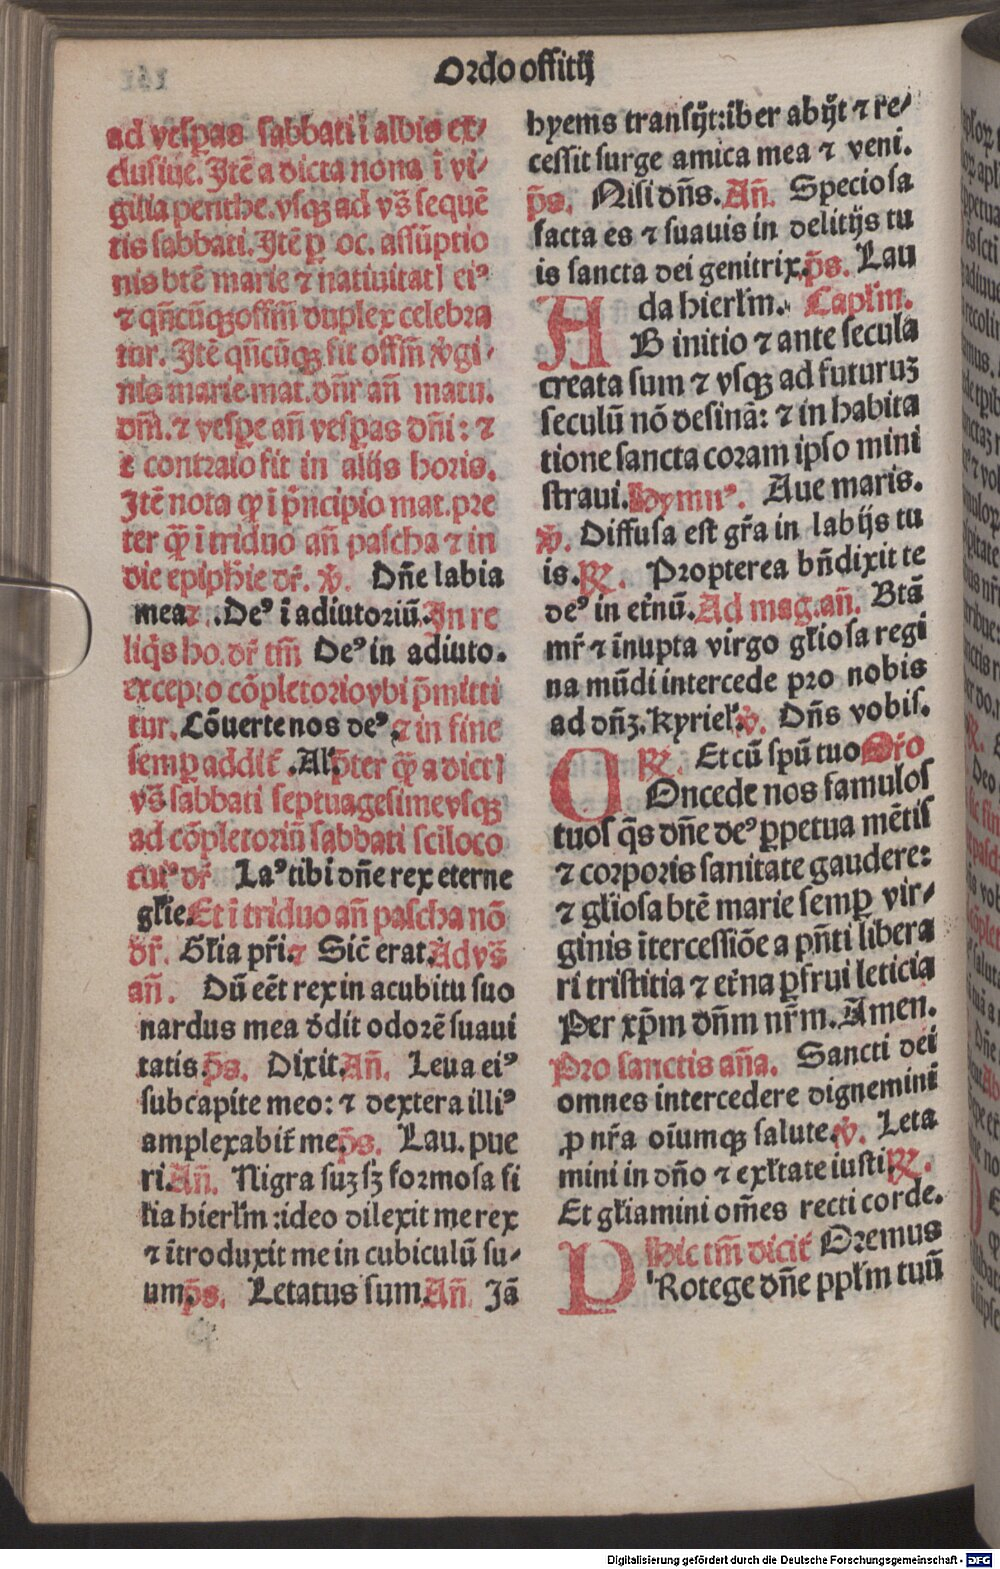 Ordo offitij
ad vesp̲as sabbati ī albis ex⸗
clusiue. Itē a dicta nona ī vi⸗
gilia penthe. vsqꝫ ad vs̄ sequē
tis sabbati. Itē ꝑ oc. assūptio
nis btē marie ⁊ natiuitat] ei⁹
⁊ qn̄cūqꝫ offm̄ duplex celebra
tur. Itē qn̄cūqꝫ fit offm̄ v̄gi⸗
nis marie mat. dn̄r an̄ matu.
dn̄i. ⁊ vesꝑe an̄ vesꝑas dn̄i: ⁊
e contraio fit in alijs horis.
Itē nota ꝙ ī p̄ncipio mat. pre
ter qꝫ̄ ī triduo an̄ pascha ⁊ in
die epiph̄ie dr̄. v̄. Dn̄e labia
mea⁊. De⁹ ī adiutoriū. In re
liq̄s ho. dr̄ tm̄ De⁹ in adiuto.
excepto cōpletorio vbi p̄mitti
tur. Cōuerte nos de⁹. ⁊ in fine
semꝑ addit̄. Al̄. p̄ter qꝫ̄ a dict]
vs̄ sabbati septuagesime vsqꝫ
ad cōpletoriū sabbati sc̄i loco
cui⁹ dr̄ La⁹ tibi dn̄e rex eterne
gl̄ie. Et ī triduo an̄ pascha nō
dr̄. Gl̄ia pr̄i ⁊ Sic̄ erat. Ad vs̄
an̄. Dū eēt rex in acubitu suo
nardus mea d̄dit odorē suaui
tatis. p̄s. Dixit. An̄. Leua ei⁹
sub capite meo: ⁊ dextera illi⁹
amplexabit̄ me. p̄s. Lau. pue
ri. An̄. Nigra suꝫ sꝫ formosa fi
lia hierl̄m: ideo dilexit me rex
⁊ ītroduxit me in cubiculū su⸗
um. p̄s. Letatus sum. An̄. Iā
hyems transijt: iber abijt ⁊ re⸗
cessit surge amica mea ⁊ veni.
p̄s. Nisi dn̄s. An̄. Speciosa
facta es ⁊ suauis in delitijs tu
is sancta dei genitrix. p̄s. Lau
da hierl̄m. Capl̄m.
AB initio ⁊ ante secula
creata sum ⁊ vsqꝫ ad futuruꝫ
seculū nō desinā: ⁊ in habita
tione sancta coram ipso mini
straui. Hymn⁹. Aue maris.
v̄. Diffusa est gr̄a in labijs tu
is. R̄. Propterea bn̄dixit te
de⁹ in et̄nū. Ad mag. an̄. Btā
mr̄ ⁊ īnupta virgo gl̄iosa regi
na mūdi intercede pro nobis
ad dn̄ꝫ. Kyriel̄. v̄. Dn̄s vobis.
R̄. Et cū spū tuo Oro
COncede nos famulos
tuos q̄s dn̄e de⁹ ꝑpetua mētis
⁊ corporis sanitate gaudere:
⁊ gl̄iosa btē marie semꝑ vir⸗
ginis ītercessiōe a pn̄ti libera
ri tristitia ⁊ et̄na ꝑfrui leticia
Per xp̄m dn̄m nr̄m. Amen.
Pro sanctis an̄a. Sancti dei
omnes intercedere dignemini
ꝓ nr̄a oīumqꝫ salute. v̄. Leta
mini in dn̄o ⁊ exl̄tate iusti. R̄.
Et gl̄iamini om̄es recti corde.
Hic tm̄ dicit̄ Oremus
PRotege dn̄e ppl̄m tuū
Digitalisierung gefördert durch die Deutsche Forschungsgemeinschaft - DFG